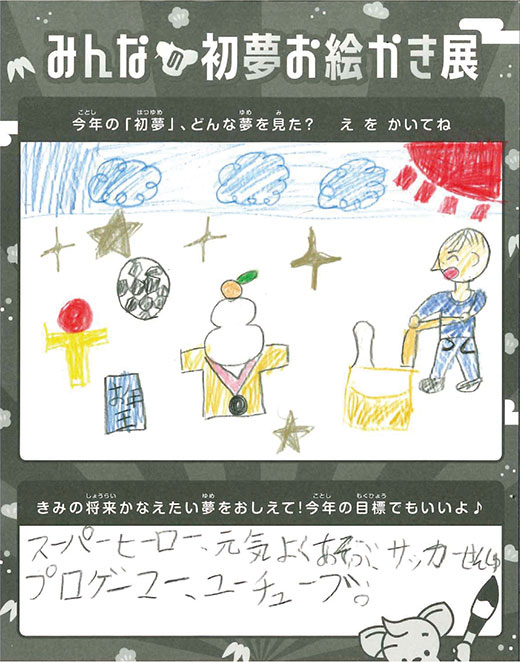 みんなの初夢お絵かき展
今年の「初夢」、どんな夢を見た？ え を かいてね
お年玉
きみの将来かなえたい夢をおしえて！今年の目標でもいいよ♪
スーパーヒーロー、元気よくあそぶ、サッカーせんしゅ
プロゲーマー、ユーチューブ。